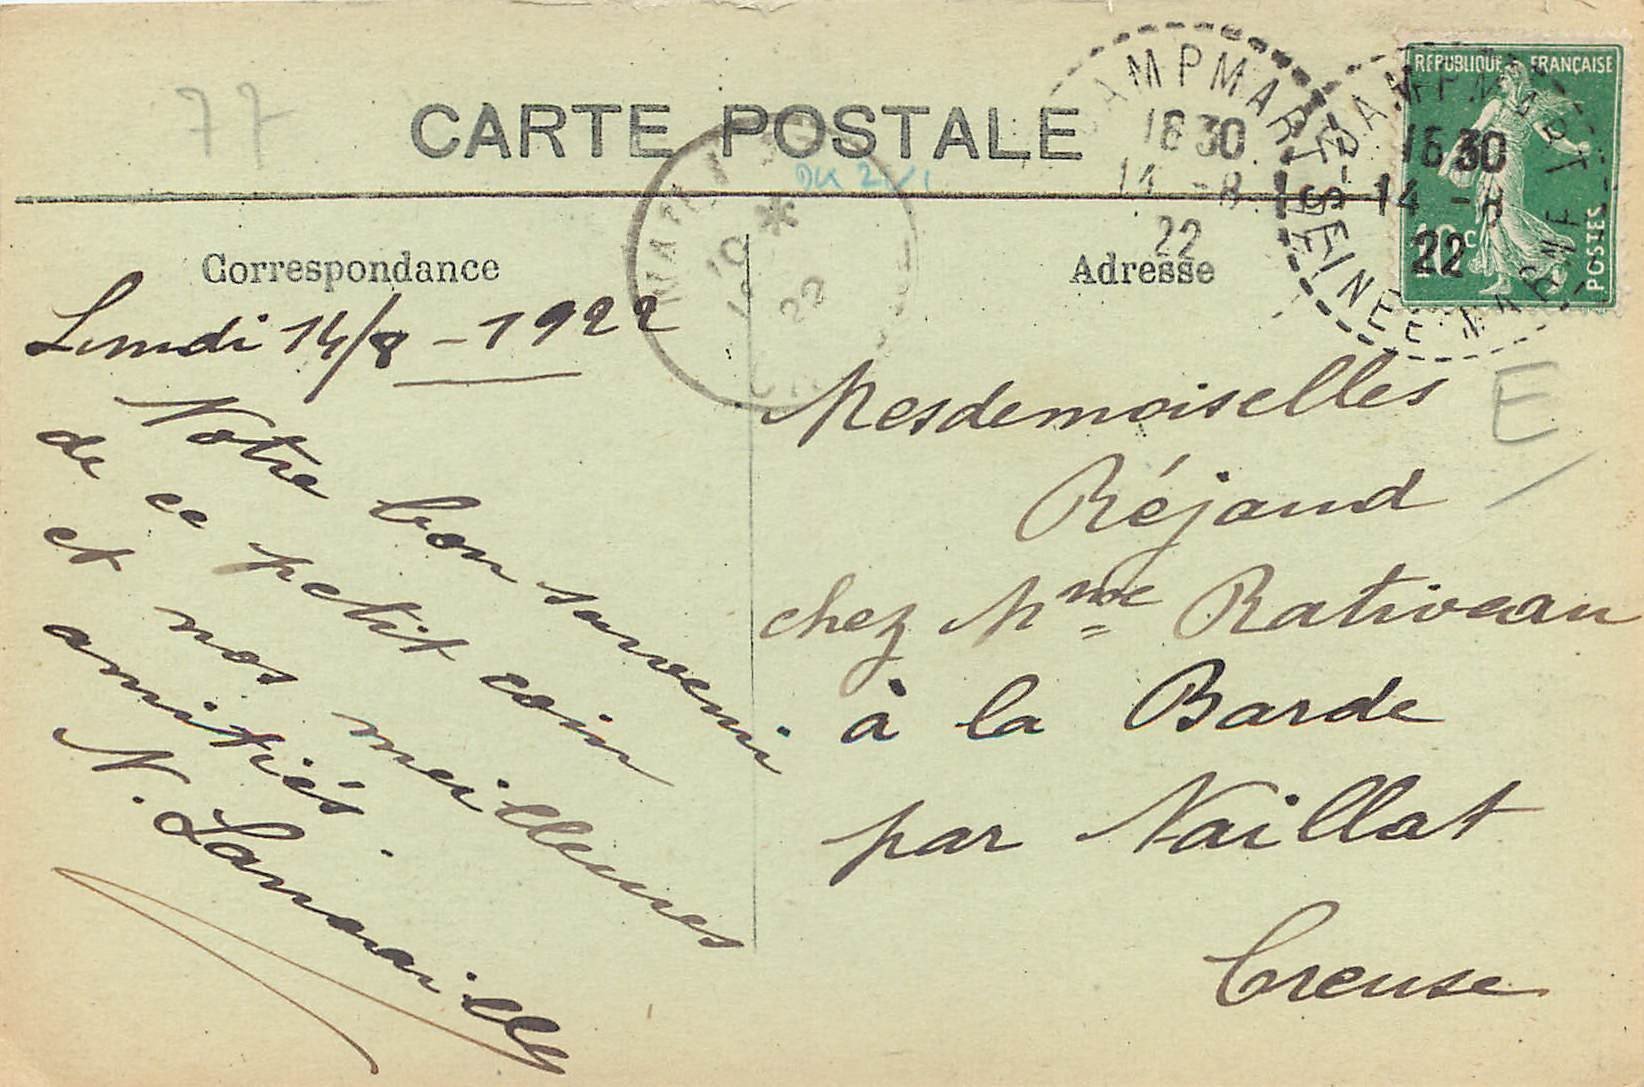 77
CARTE POSTALE
DAMPMART
16 30
14 -8
22
SEINE
DAMPMART
16 30
14 -8
22
SEINE-ET-MARNE
RÉPUBLIQUE FRANÇAISE
10c
POSTES
22
Correspondance
Lundi 14/8 - 1922
Notre bon souvenir
de ce petit coin
et nos meilleures
amitiés.
Adresse
E
Mesdemoiselles
Réjaud
chez Mme Rativeau
à la Barde
par Naillat
Creuse